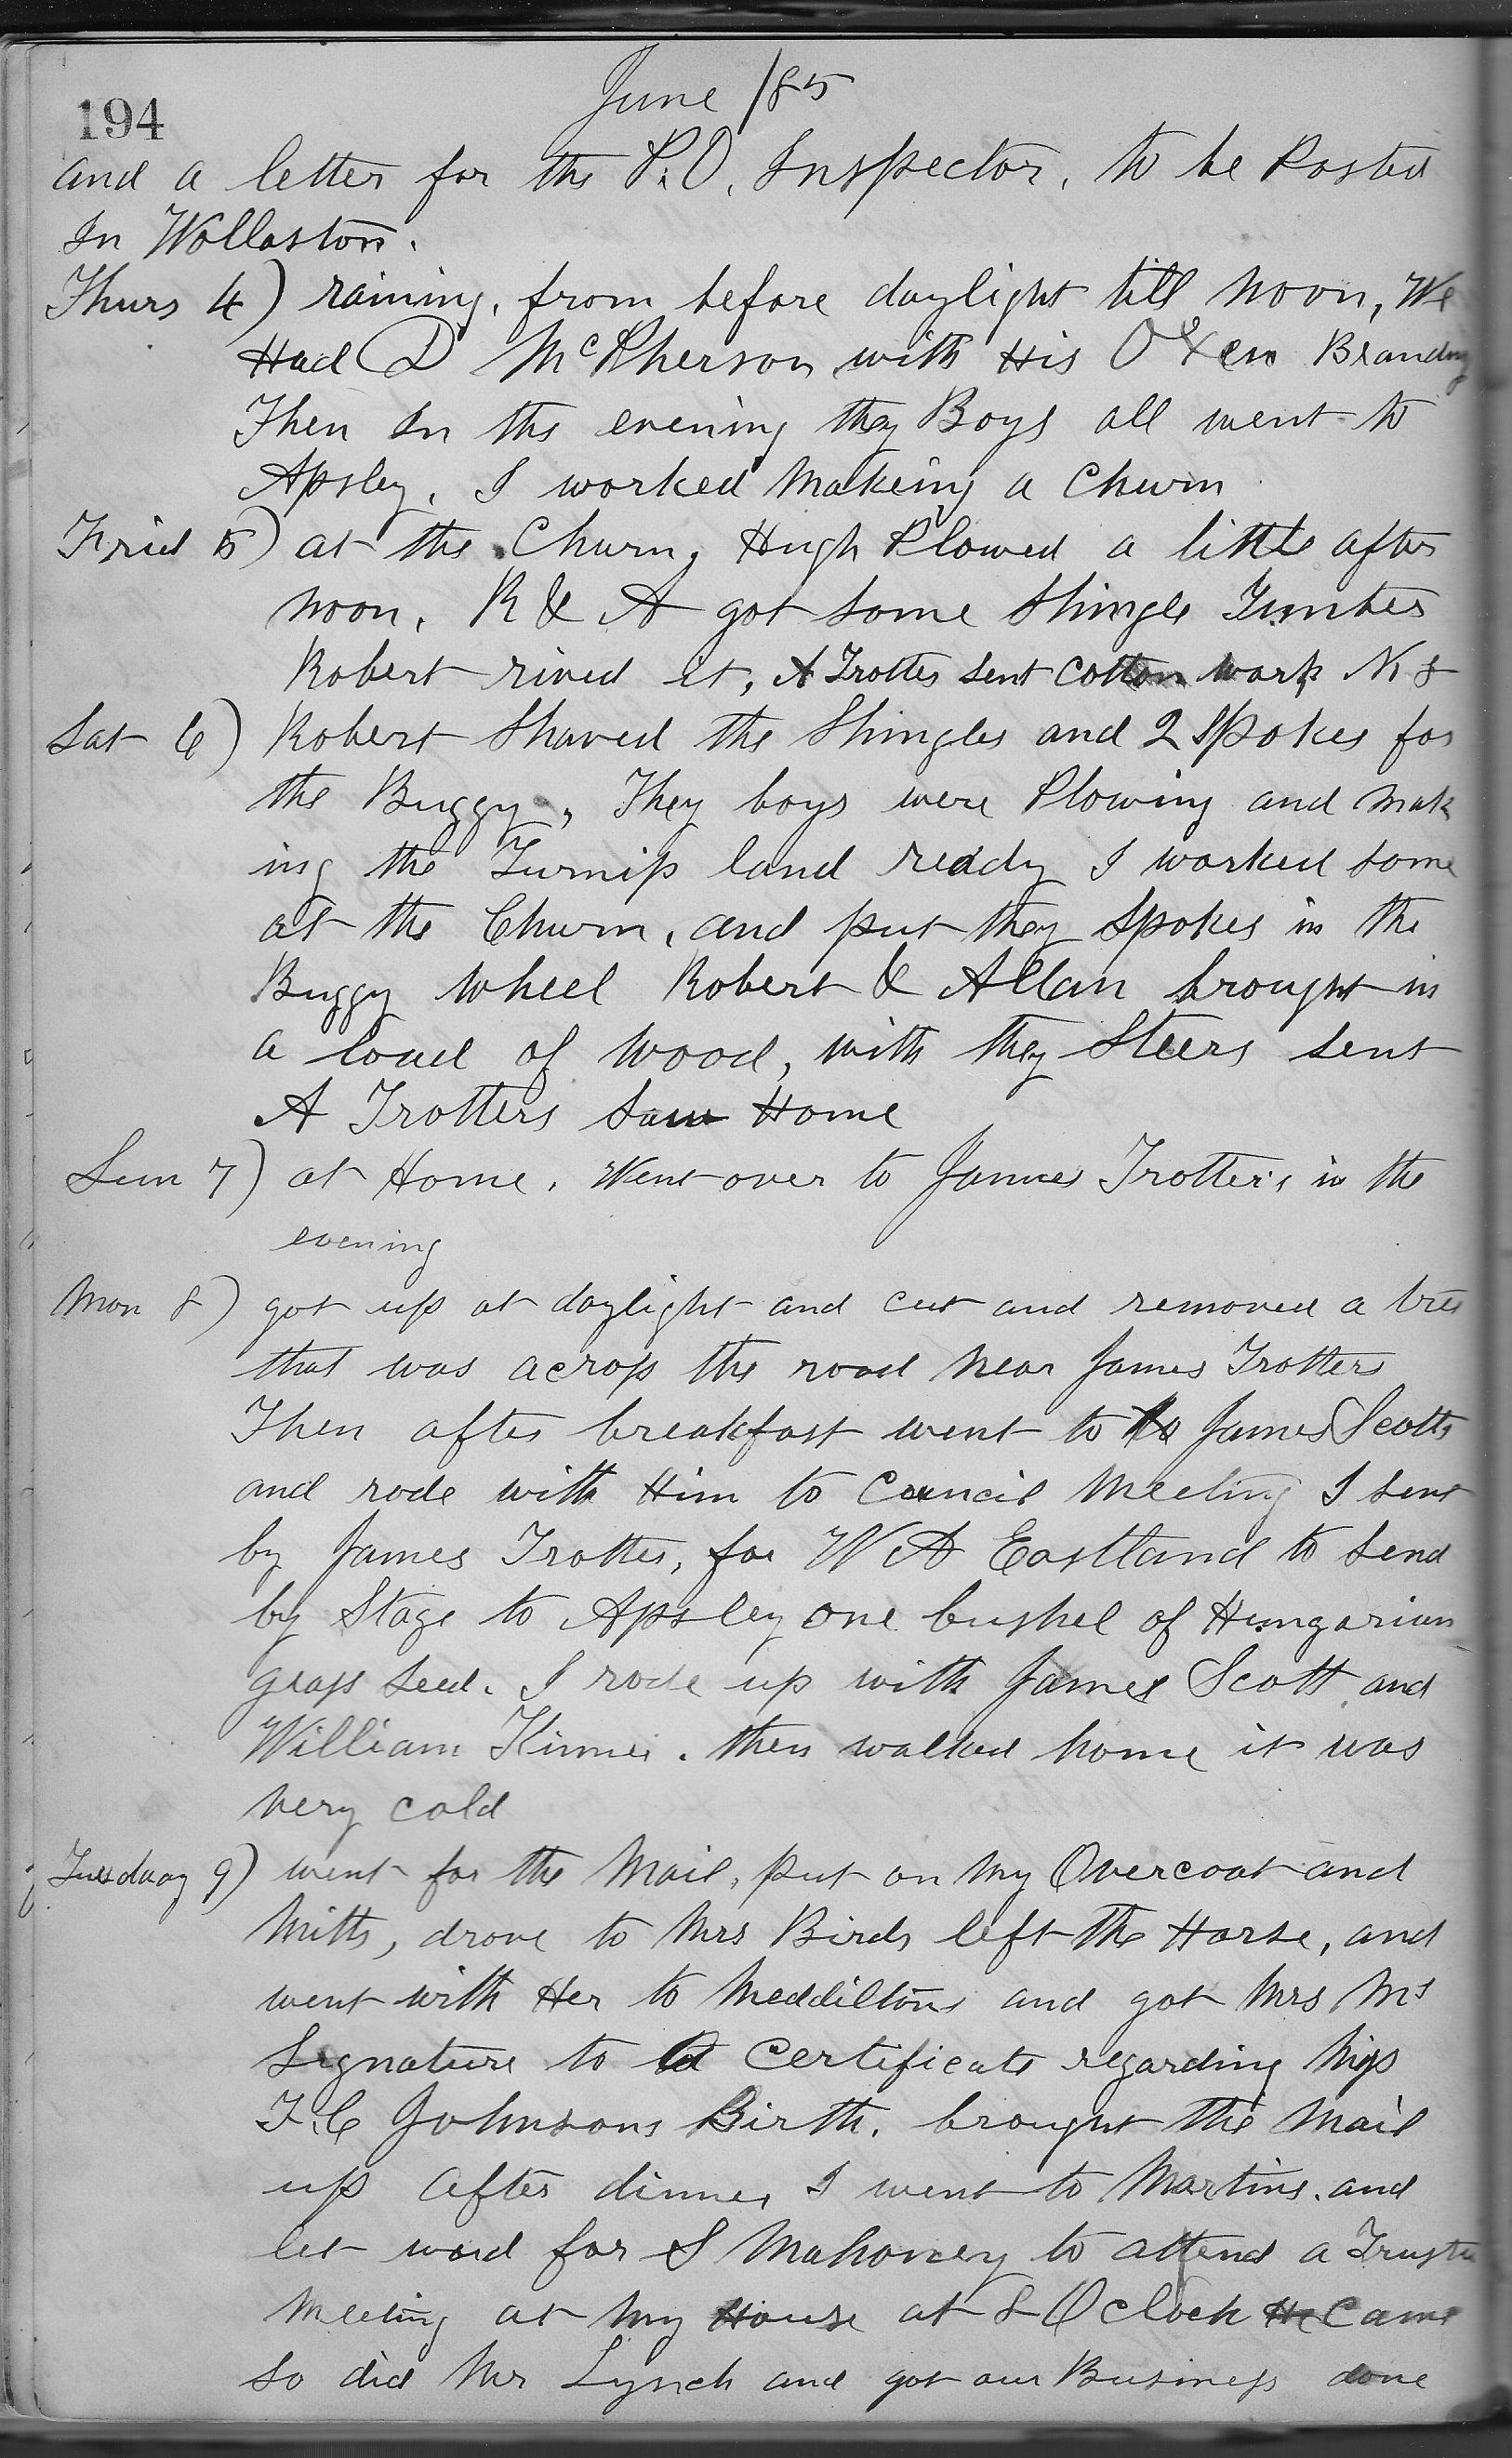 194
June /85
and a letter for the P.O. Inspector, to be Posted
In Wollaston.
Thurs 4) raining, from before daylight till noon, We
Had D McPherson with His Oxen Branding
Then In the evening they Boys all went to
Apsley, I worked Making a Churn
Frid 5) at the Churn, Hugh Plowed a little after
noon, R & A got some Shingle Timber
Robert rived it, A Trotter sent Cotton warp N 8
Sat 6) Robert Shaved the Shingles and 2 Spokes for
the Buggy, They boys were Plowing and Mak
ing the Turnip land ready I worked some
at the Churn, and put they Spokes in the
Buggy wheel Robert & Allan brought in
a load of wood, with they Steers sent
A Trotters Saw Home
Sun 7) at Home, Went over to James Trotter's in the
evening
Mon 8) got up at daylight and cut and removed a tree
that was across the road near James Trotters
Then after breakfast went to James Scotts
and rode with Him to Council Meeting I sent
by James Trotter, for W A Eastland to send
by Stage to Apsley one bushel of Hungarian
grass seed. I rode up with James Scott and
William . then walked home it was
very cold
Tuesday 9) went for the Mail, put on My Overcoat and
Mitts, drove to Mrs Birds left the Horse, and
went with Her to Meddiltons and got Mrs Ms
Signature to a Certificate regarding Miss
F. C Johnsons Birth. brought the Mail
up after dinner I went to Martins. and
let word for S Mahoney to attend a Trustee
Meeting at My House at 8 OClock He Came
so did Mr Lynch and got our Business done